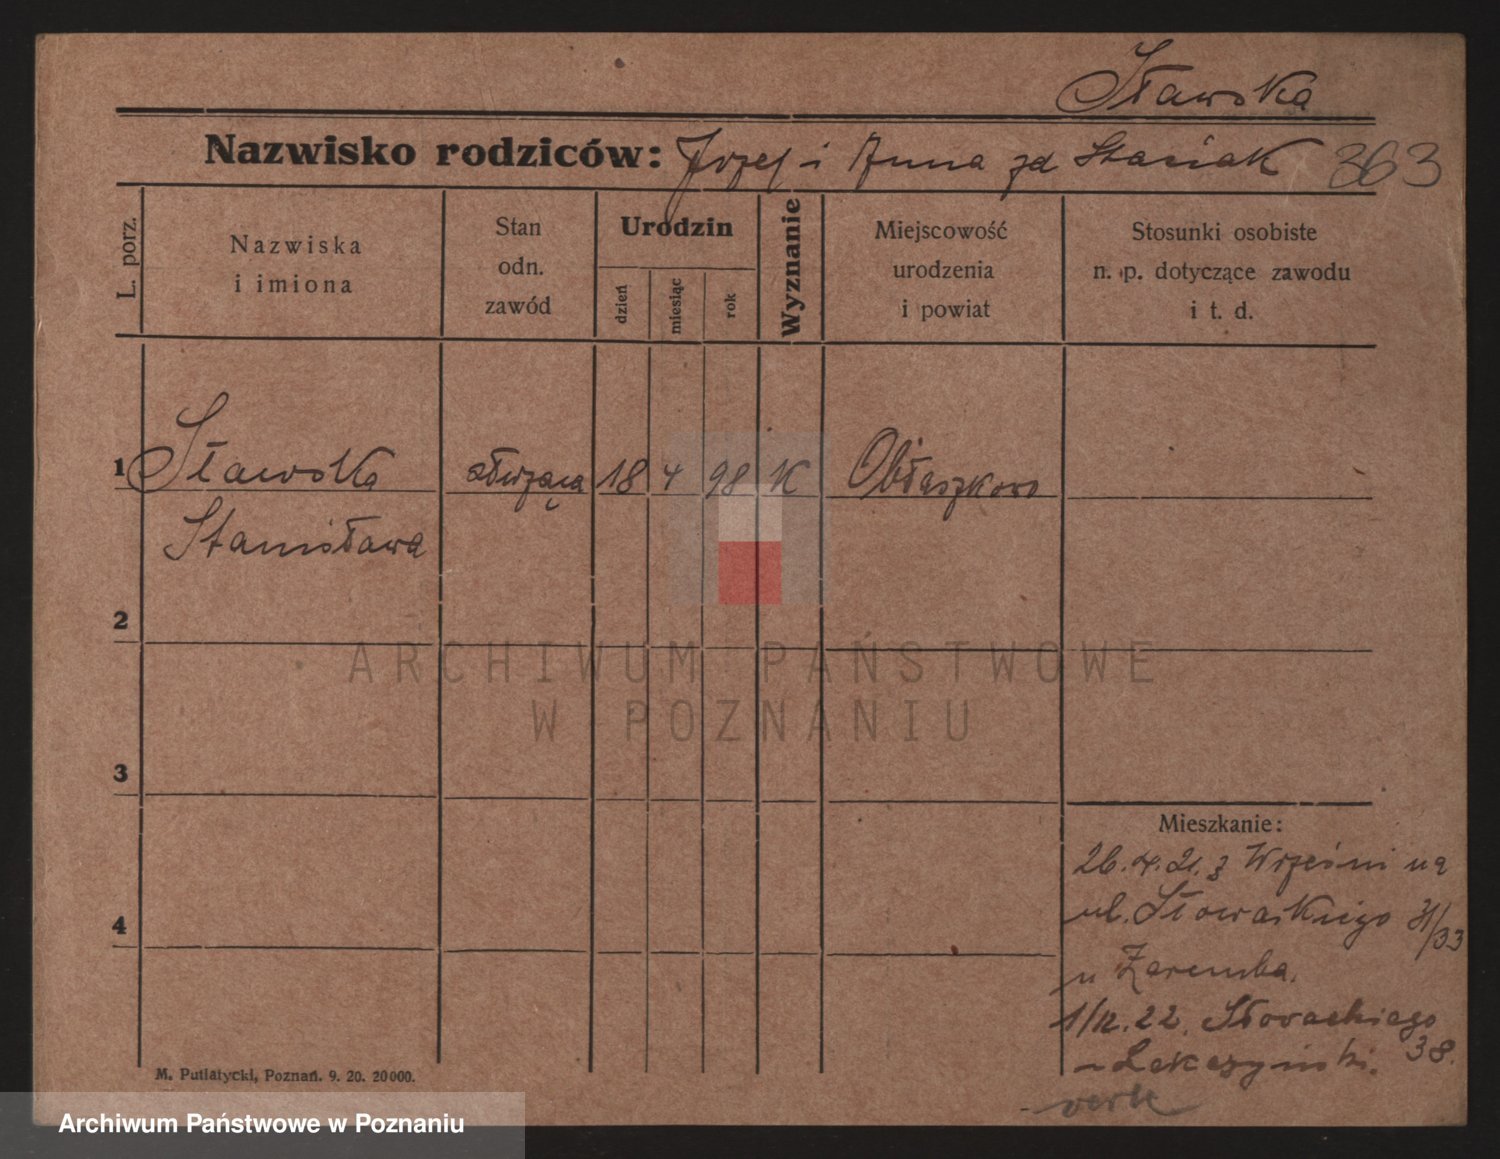 Sławska
Nazwisko rodziców: Józef i Anna zd Stasiak 363
L. porz.
Nazwiska
i imiona
Stan
odn.
zawód
Urodzin
dzień
miesiąc
rok
Wyznanie
Miejscowość
urodzenia
i powiat
Stosunki osobiste
n. p. dotyczące zawodu
i t. d.
1 Sławska służąca 18 4 98 K Obłaszkowo
Stanisława
2
ARCHIWUM PAŃSTWOWE
W POZNANIU
3
Mieszkanie:
26.4.21. z Wrześni na
ul. Słowackiego 31/33
4
u Zaremba.
1/12.22. Słowackiego
38.
verte
M. Putiatycki, Poznań. 9. 20. 20000.
Archiwum Państwowe w Poznaniu